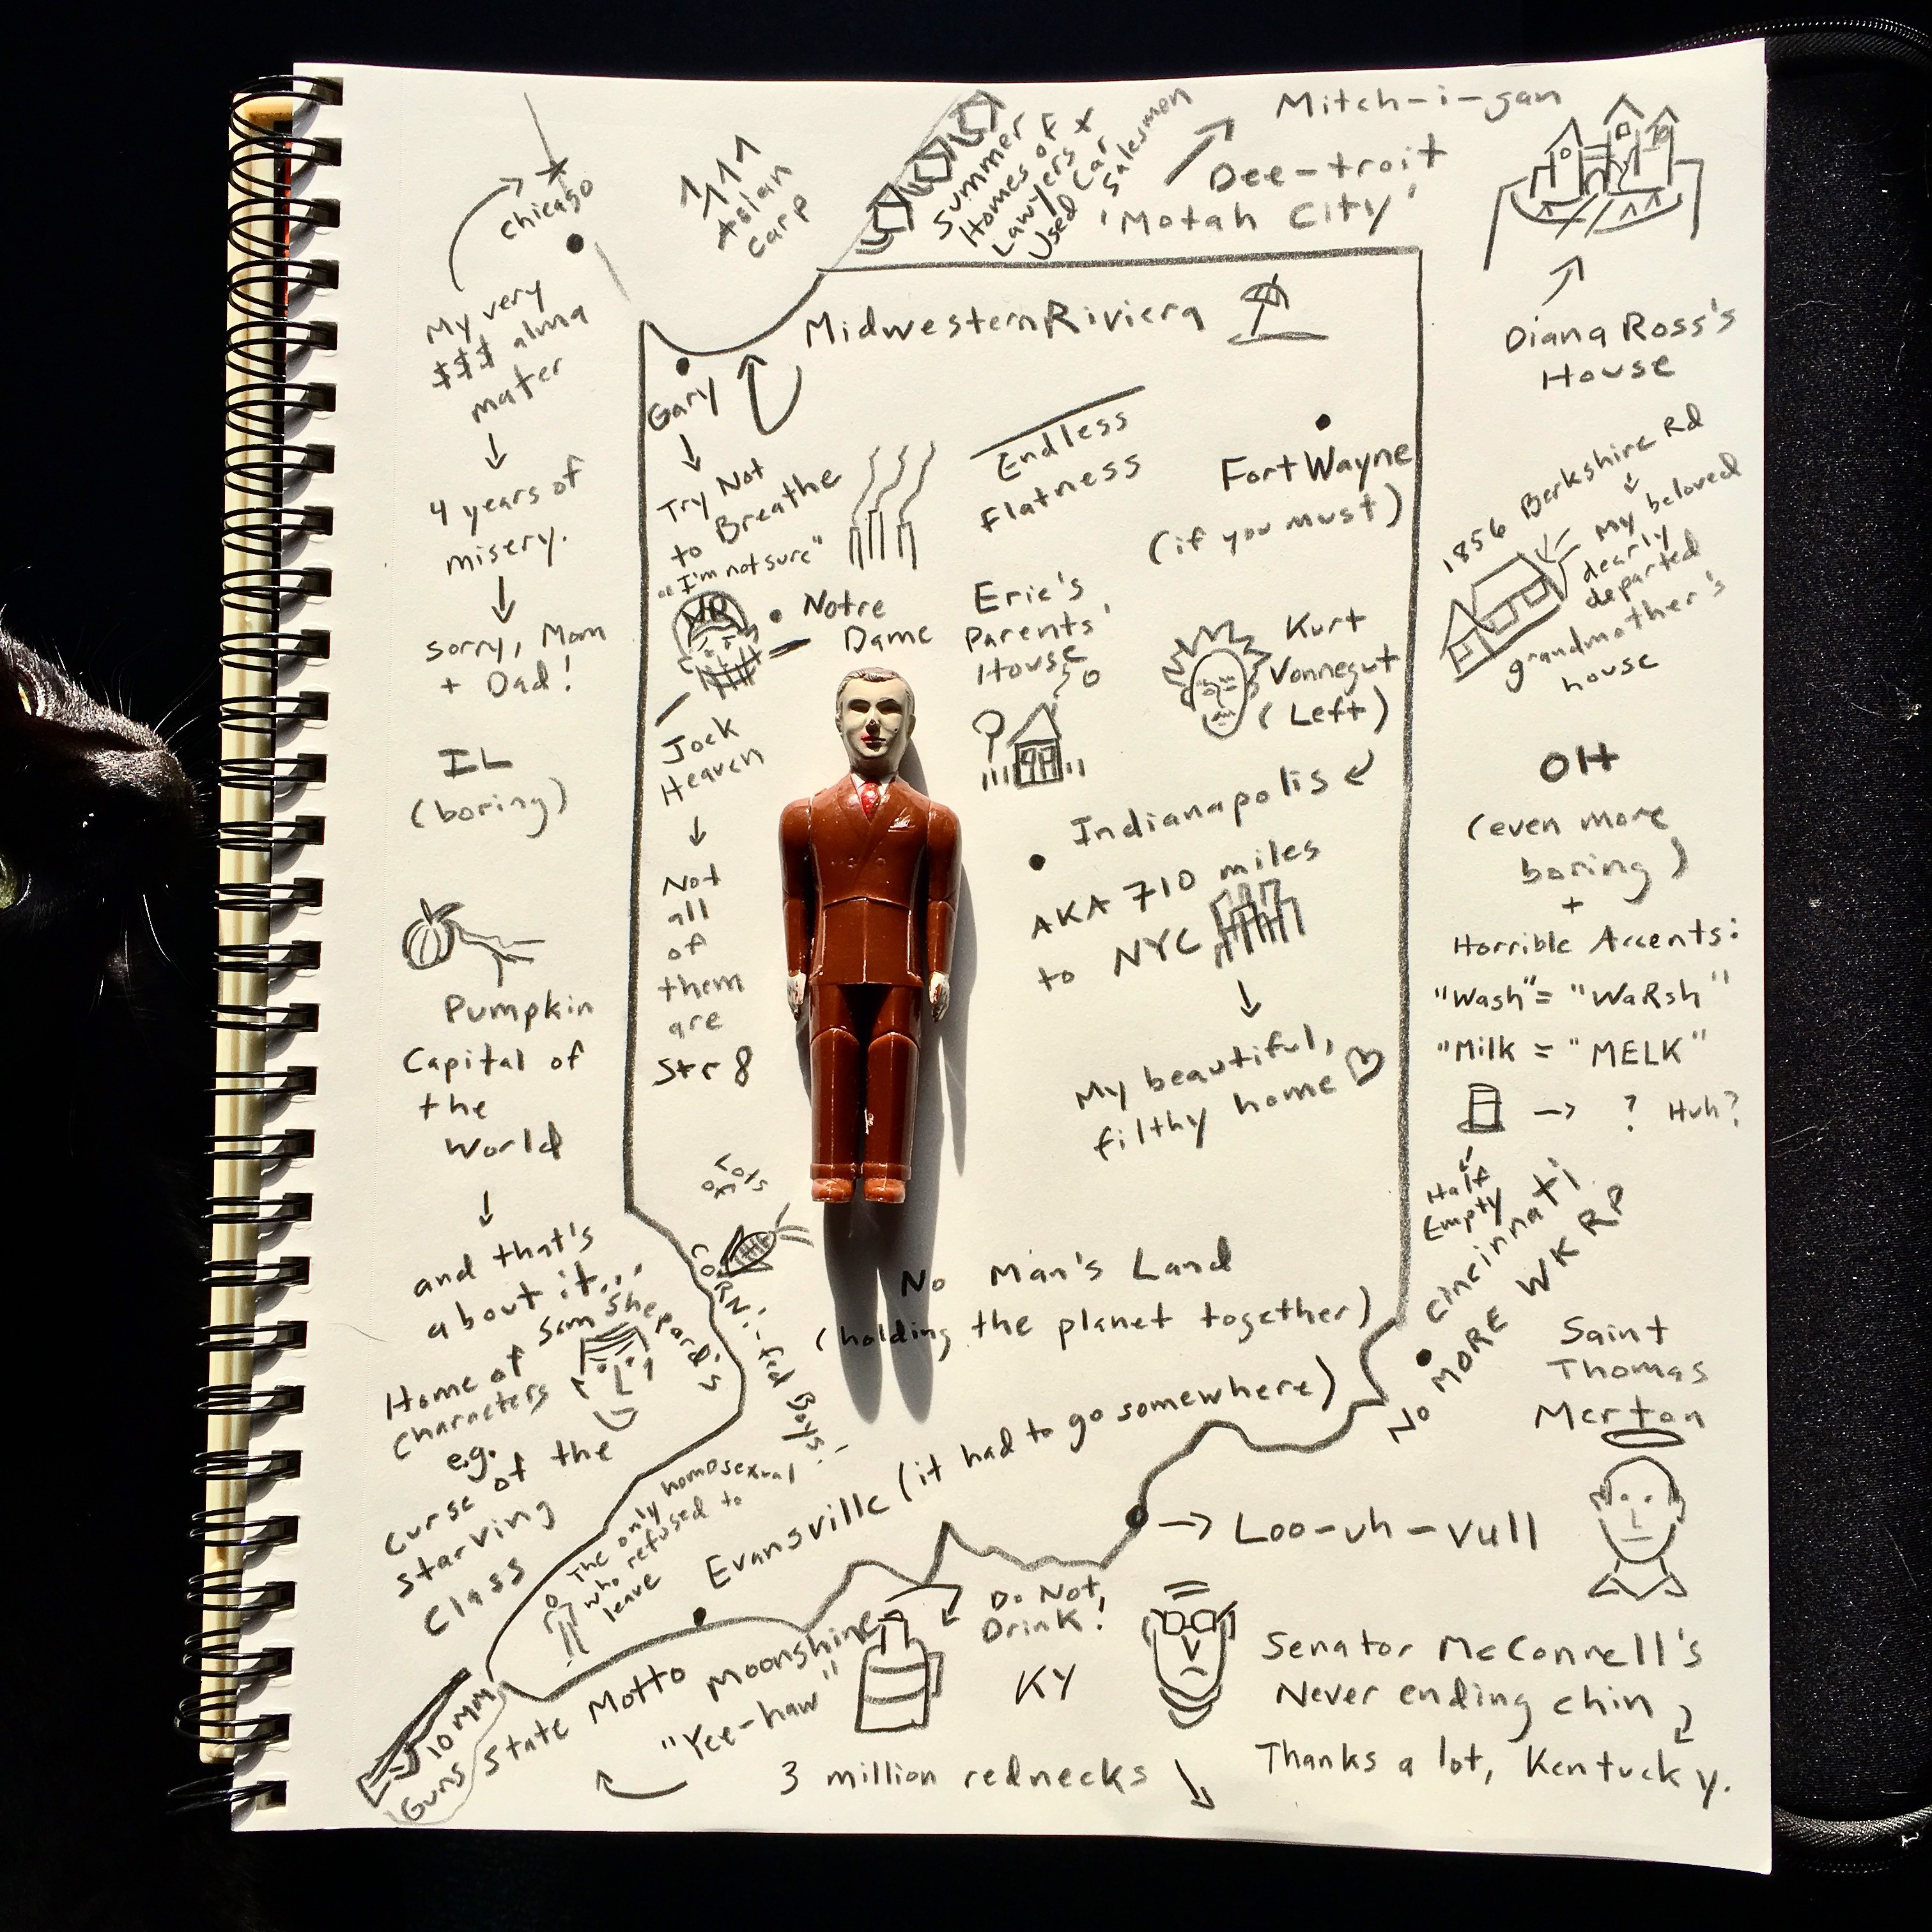 Chicago
My very
$$$ alma
mater
4 years of
misery.
Sorry, Mom
+ Dad!
IL
(boring)
Pumpkin
Capital of
the
World
and that's
about it...
Home of Sam Shepard's
Characters
e.g.
Curse of the
Starving
Class
Asian
Carp
Summer
Homes of
Lawyers +
Used Car
Salesmen
Mitch-i-gan
Dee-troit
'Motah City'
Diana Ross's
House
Midwestern Riviera
Gary
Try Not
to Breathe
"I'm not sure"
Notre
Dame
Jock
Heaven
Not
all
of
them
are
Str8
Endless
Flatness
Fort Wayne
(if you must)
Eric's
Parents'
House
Kurt
Vonnegut
(Left)
Indianapolis
AKA 710 miles
to NYC
My beautiful,
filthy home
1856 Berkshire Rd
My beloved
dearly
departed
grandmother's
house
OH
(even more
boring)
+
Horrible Accents:
"Wash" = "WaRsh"
"Milk = "MELK"
? Huh?
Half
Empty
Cincinnati
NO MORE WKRP
Lots
of
CORN!-fed Boys!
No Man's Land
(holding the planet together)
The only homosexual
who refused to
leave
Evansville (it had to go somewhere)
Loo-uh-vull
Saint
Thomas
Merton
10 MM
Guns
State Motto
"Yee-haw"
Moonshine
Do Not
Drink!
KY
3 million rednecks
Senator McConnell's
Never ending chin
Thanks a lot, Kentucky.